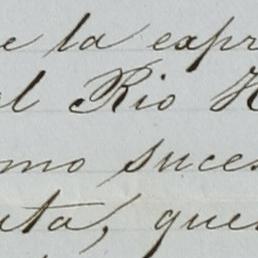 e la expr
el Rio H
omo suces
uta, que